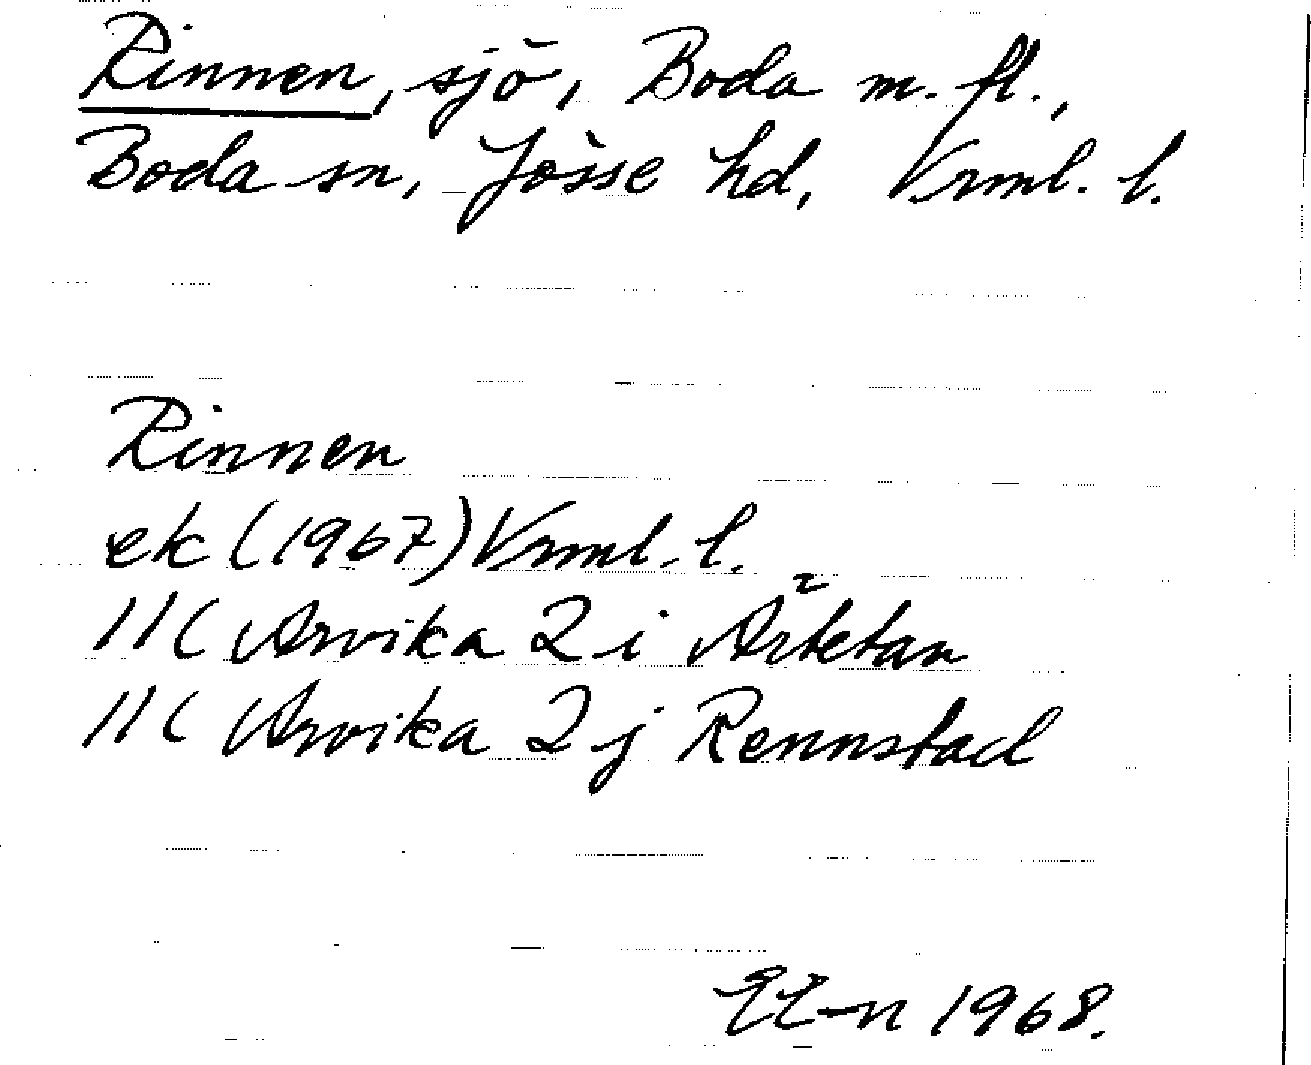 Rinnen, sjö, Boda m. fl.,
Boda sn, Jösse hd, Vrml. l.
Rinnen
ek (1967) Vrml. l.
11C Arvika 2 i Årbetan
11C Arvika 2 j Rennstad
1968.